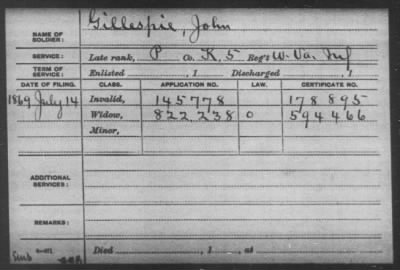 NAME OF SOLDIER: Gillespie, John
SERVICE: Late rank, P Co. K, 5 Reg't W. Va. Inf
TERM OF SERVICE: Enlisted , 1 Discharged , 1
DATE OF FILING. CLASS. APPLICATION NO. LAW. CERTIFICATE NO.
1869 July 14 Invalid, 145778 178895
Widow, 822238 0 594466
Minor,
ADDITIONAL SERVICES:
REMARKS:
Died , 1 , at